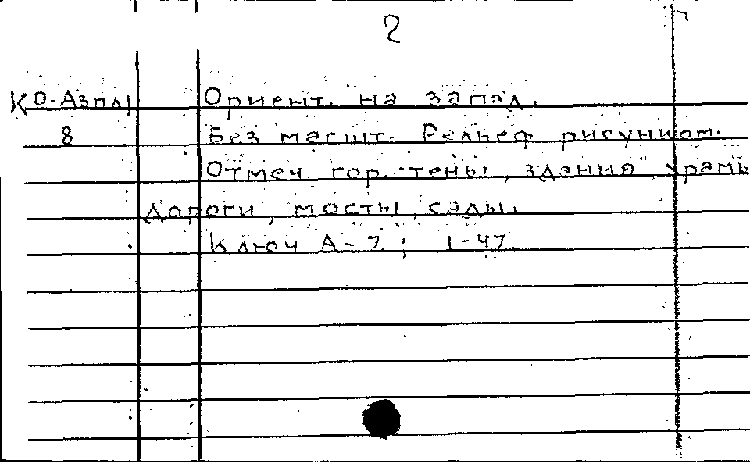 2
КО-Азпл Ориент. на запад.
8 Без масшт. Рельеф рисунком.
Отмеч. гор. стены, здания, храмы
дороги, мосты, сады.
Ключ А-Z; 1-47.